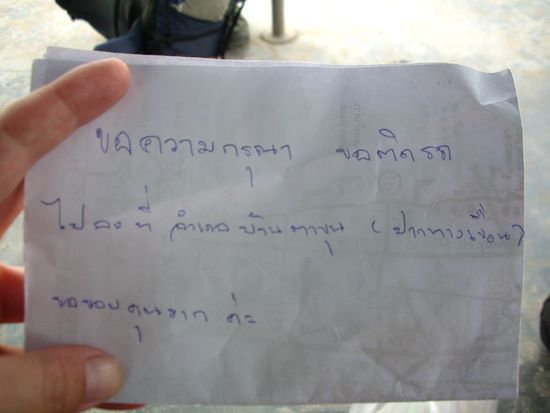 ขอความกรุณา ขอติดรถ
ไปลงที่ อำเภอบ้านตาขุน (ปากทางเขื่อน)
ขอขอบคุณมาก ค่ะ